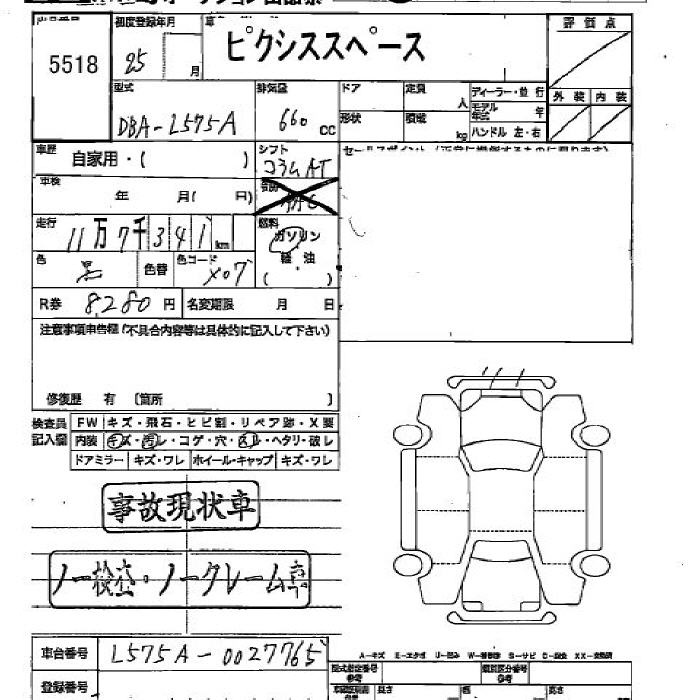 5518
初度登録年月
25 月
ピクシススペース
評価点
型式
DBA-L575A
排気量
660 cc
ドア
定員 人
形状
積載 kg
ディーラー・並行
モデル年式 年
ハンドル 左・右
外装 内装
車歴 自家用・( )
シフト
コラムAT
車検 年 月( 日)
走行 11万7千341 km
燃料
ガソリン
軽油
( )
色 黒 色替 色コード X07
R券 8,280 円 名変期限 月 日
注意事項申告欄(不具合内容等は具体的に記入して下さい)
修復歴 有 〔箇所 〕
検査員記入欄
FW キズ・飛石・ヒビ割・リペア跡・X要
内装 キズ・汚レ・コゲ・穴・スレ・ヘタリ・破レ
ドアミラー キズ・ワレ ホイール・キャップ キズ・ワレ
事故現状車
ノー検査・ノークレーム車
車台番号 L575A-0027765
登録番号
型式指定番号
類別区分番号